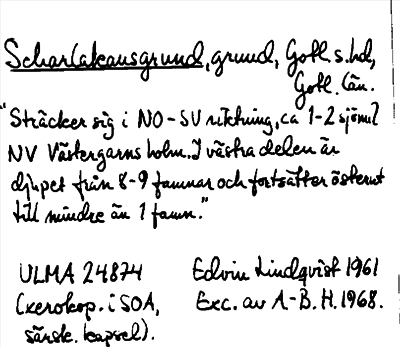 Scharlakansgrund, grund, Gotl. s. hd,
Gotl. län.
"Sträcker sig i NO-SV riktning, ca 1-2 sjömil
NV Västergarns holm. I västra delen är
djupet från 8-9 famnar och fortsätter österut
till mindre än 1 famn."
ULMA 24874
(xerokop. i SOA,
särsk. kapsel).
Edvin Lindqvist 1961
Exc. av A-B. H. 1968.